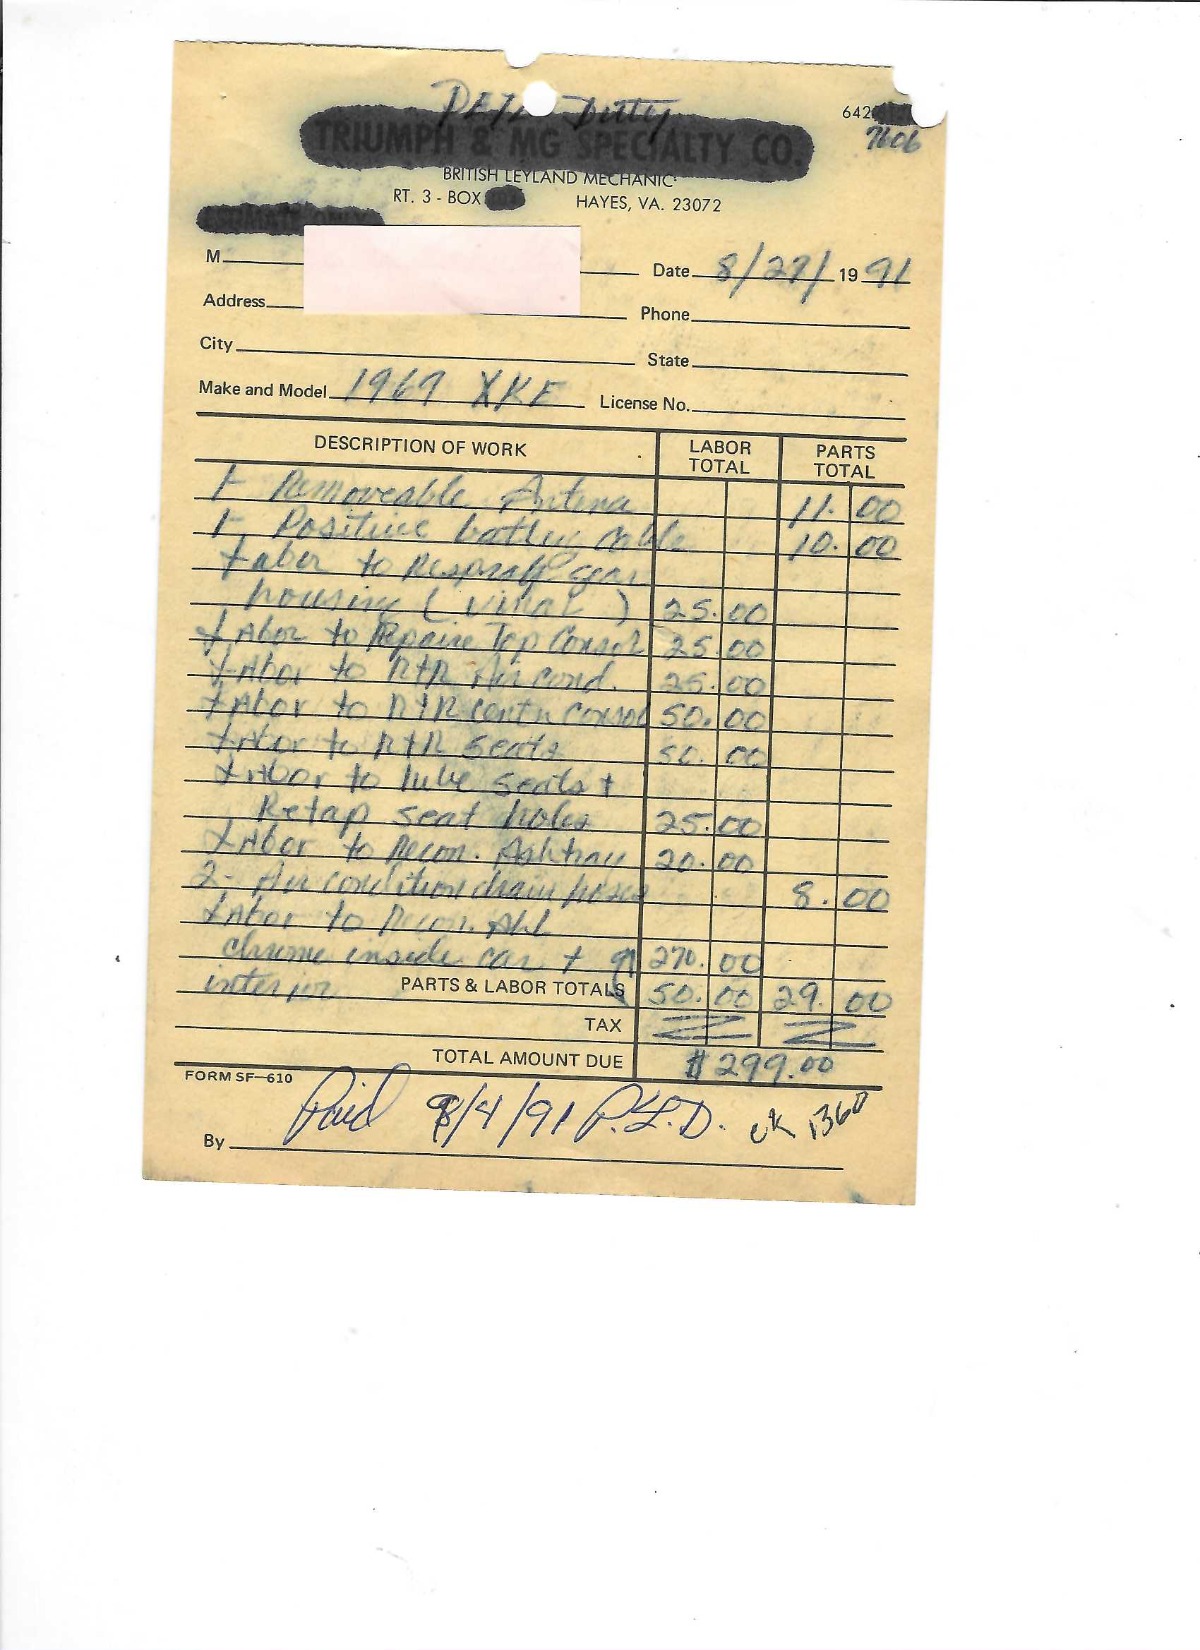 Pete Duty
TRIUMPH & MG SPECIALTY CO.
642
7606
BRITISH LEYLAND MECHANIC
RT. 3 - BOX HAYES, VA. 23072
ESTIMATE ONLY
M
Date 8/27/ 19 91
Address
Phone
City
State
Make and Model 1967 XKE License No.
DESCRIPTION OF WORK LABOR TOTAL PARTS TOTAL
1- Removeable Antena 11.00
1- Positive battery cable 10.00
Labor to Respray gear
housing (vinal) 25.00
Labor to Repaire Top Consol 25.00
Labor to R+R Air cond. 25.00
Labor to R+R centr consol 50.00
Labor to R+R seats 50.00
Labor to lube seats +
Retap seat holes 25.00
Labor to Recon. Ashtray 20.00
2- Air condition drain hoses 8.00
Labor to Recon. All
chrome inside car + 270.00
interior PARTS & LABOR TOTALS 50.00 29.00
TAX
TOTAL AMOUNT DUE $299.00
FORM SF-610
By Paid 9/4/91 P.L.D. ck 1360